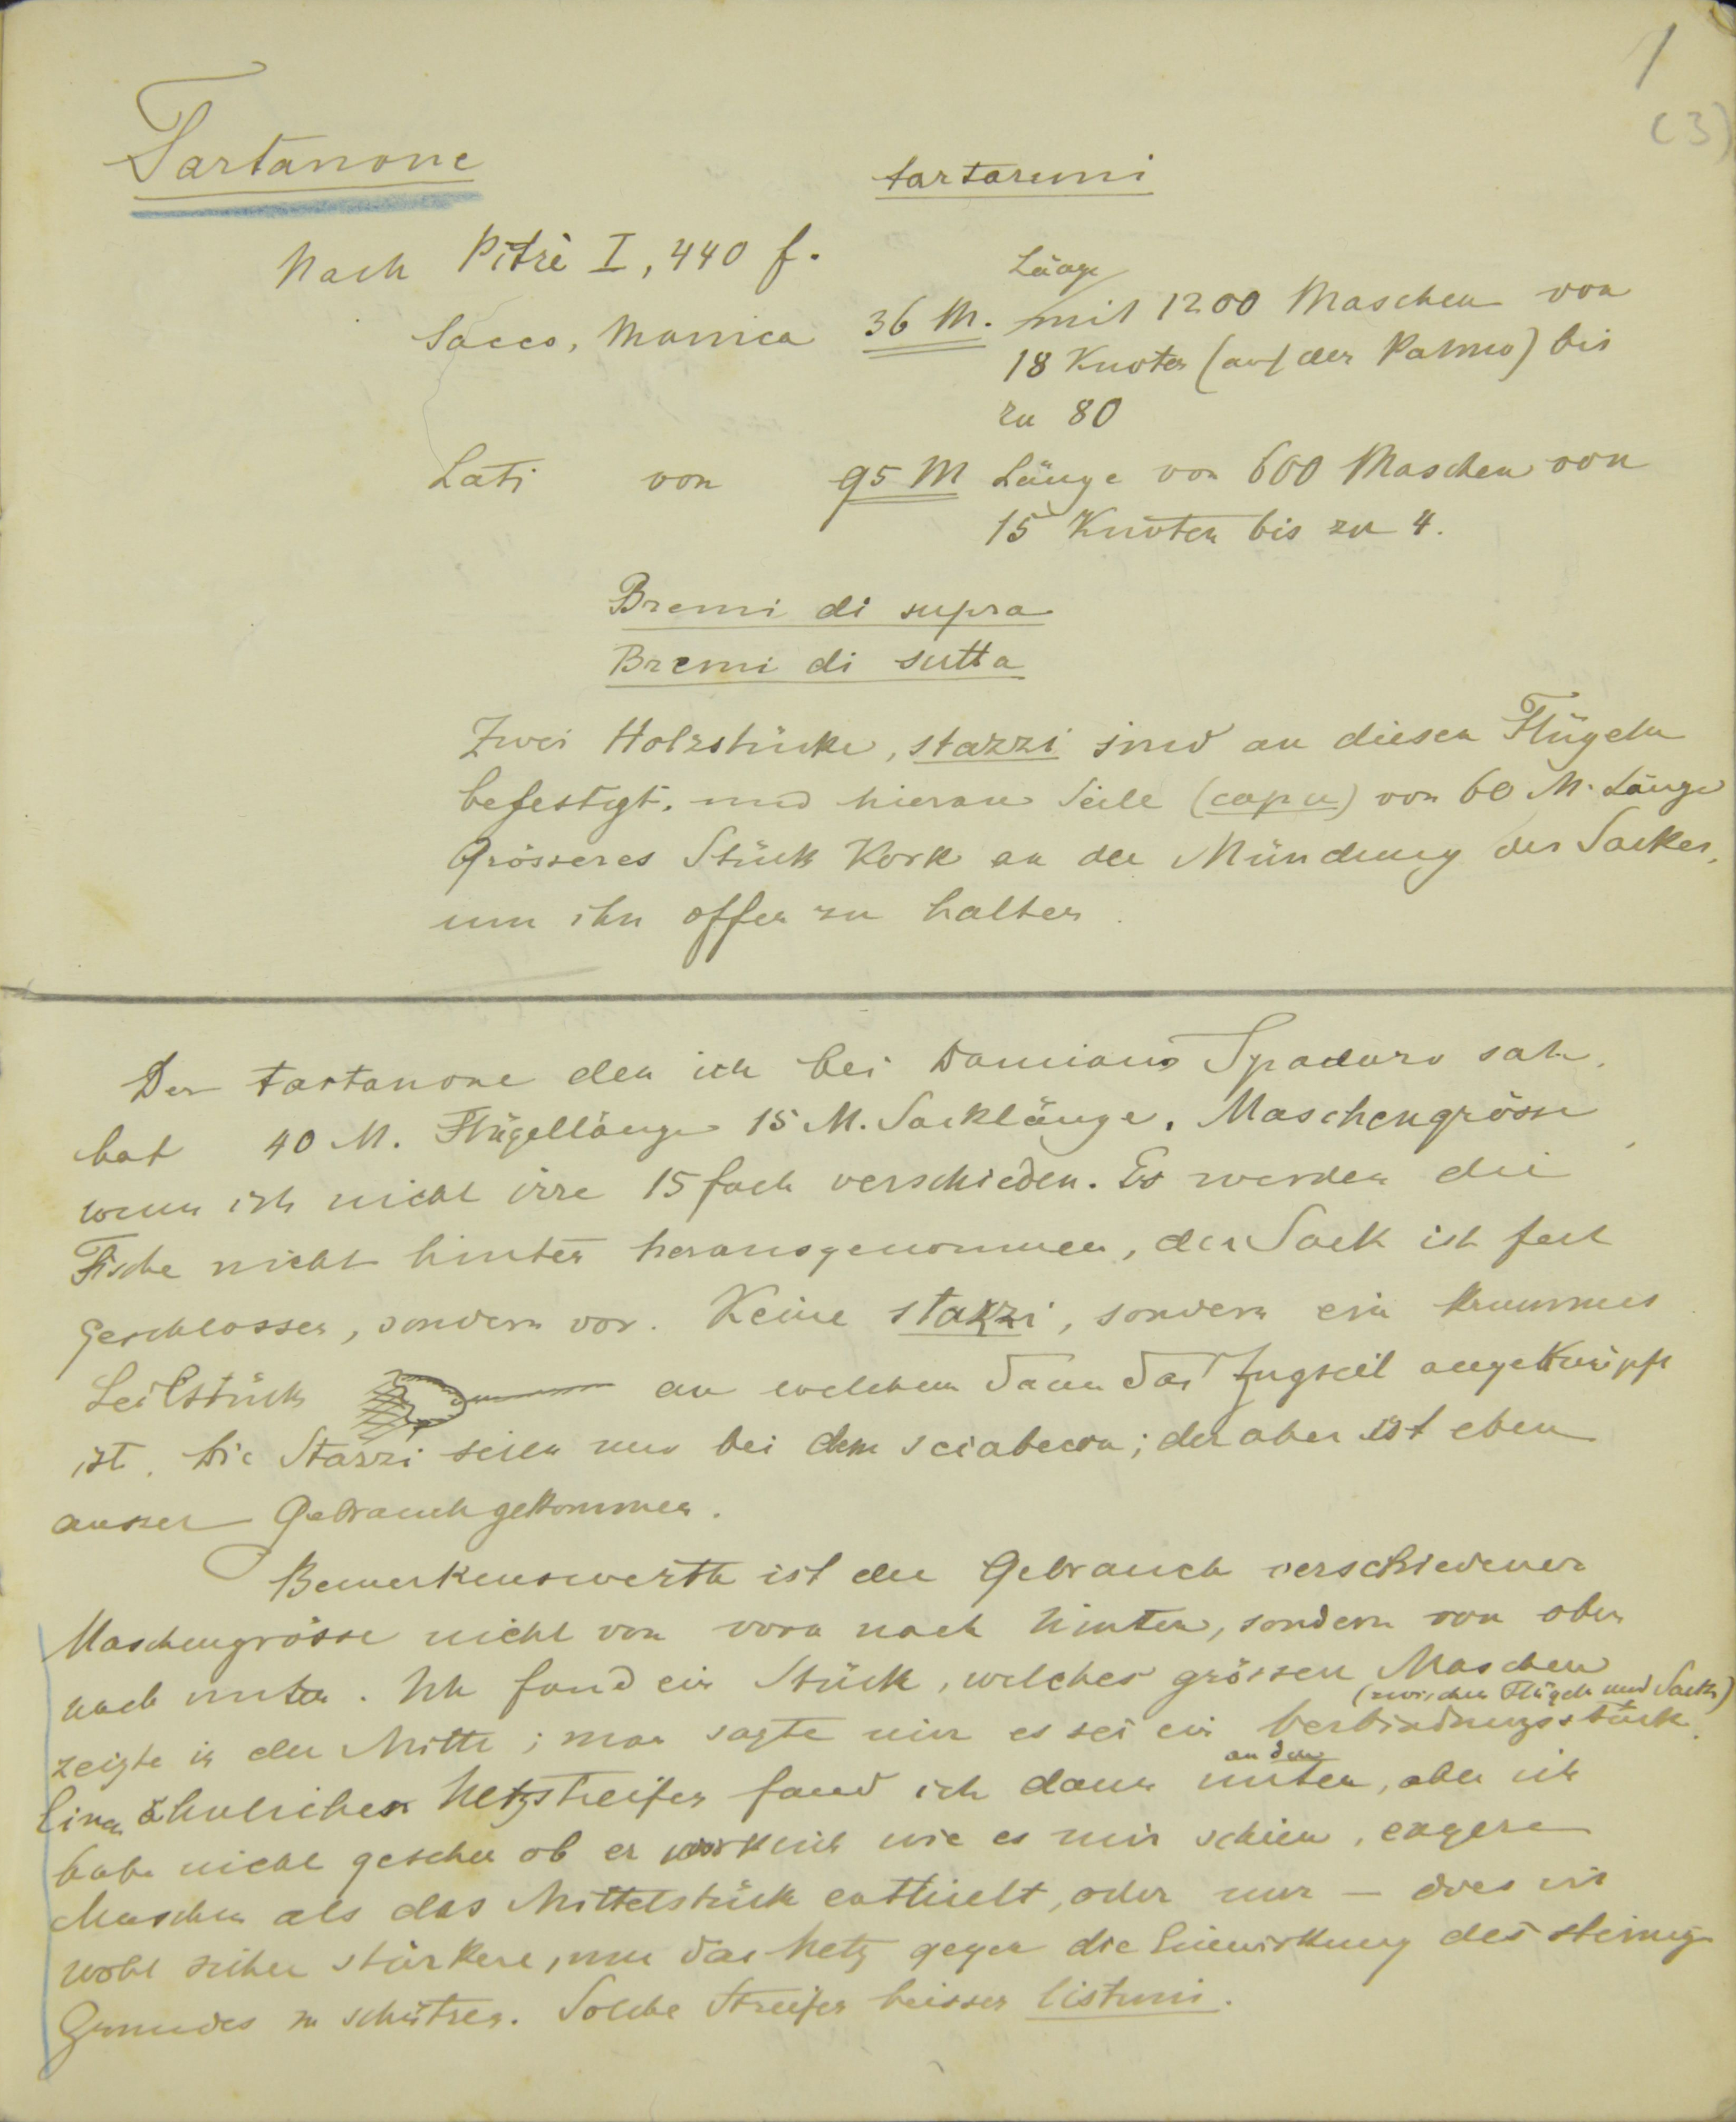 1
(3)
Tartanone
tartaruni
Nach Pitrè I, 440 f.
Länge
Sacco, Manica 36 M. mit 1200 Maschen von
18 Knoten (auf der Palmo) bis
zu 80
Lati von 95 M Länge von 600 Maschen von
15 Knoten bis zu 4.
Bremi di supra
Bremi di sutta
Zwei Holzstücke, stazzi sind an diesen Flügeln
befestigt. und hieran Seile (capu) von 60 M. Länge
Grösseres Stück Kork an der Mündung des Sackes,
um ihn offen zu halten.
Der tartanone den ich bei Damiano Spadaro sah,
hat 40 M. Flügellänge 15 M. Sacklänge. Maschengrösse,
wenn ich nicht irre 15fach verschieden. Es werden die
Fische nicht hinten herausgenommen, der Sack ist fest
geschlossen, sondern vor. Keine stazzi, sondern ein krummes
Seilstück an welchem dann das Zugseil angeknüpft
ist. Die Stazzi seien nur bei dem sciabecon; der aber ist eben
ausser Gebrauch gekommen.
Bemerkenswerth ist der Gebrauch verschiedener
Maschengrösse nicht von vorn nach hinten, sondern von oben
nach unten. Ich fand ein Stück, welches grössere Maschen
(zwischen Flügeln und Sack)
zeigte in der Mitte; man sagte mir es sei ein Verbindungsstück.
an dem
Einen ähnlichen Netzstreifen fand ich dann unten, aber ich
habe nicht gesehen ob er wirklich wie es mir schien, engere
Maschen als das Mittelstück enthielt, oder nur — dies ist
wohl sicher stärkere, um das Netz gegen die Einwirkung des steinig
Grundes zu schützen. Solche Streifen heissen listuni.